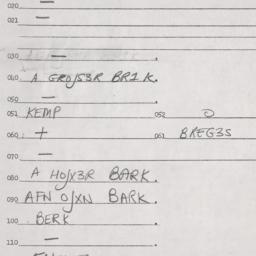 020 —
021 —
030 —
040 A GRO/S3R BR1K.
050 —
051 KEMP 052 O
060 + 061 BREG3S
070 —
080 A HO/X3R BARK.
090 AFN O/XN BARK.
100 BERK
110 —